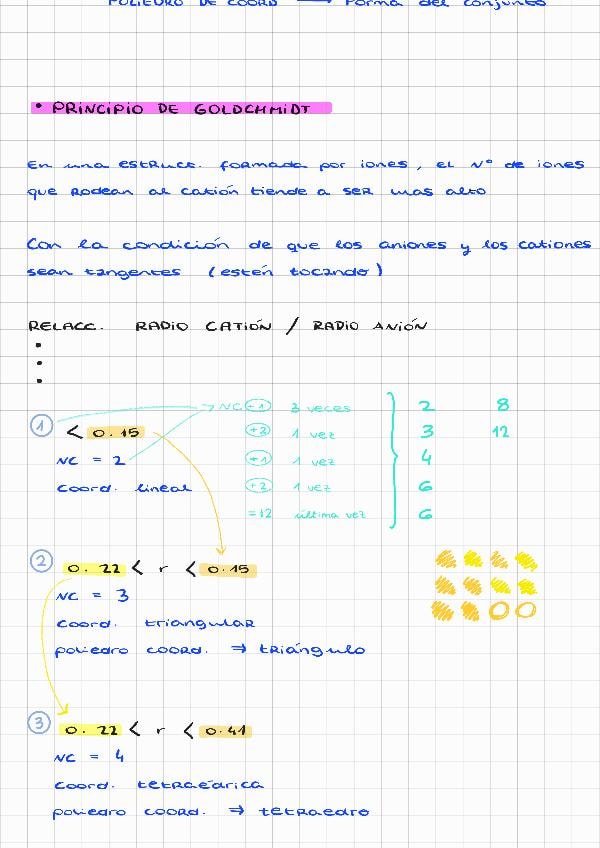 POLIEDRO DE COORD → Forma del conjunto
• PRINCIPIO DE GOLDCHMIDT
En una estruct. formada por iones, el Nº de iones
que rodean al catión tiende a ser mas alto
Con la condición de que los aniones y los cationes
sean tangentes (estén tocando)
RELACC. RADIO CATIÓN / RADIO ANIÓN
•
•
•
→ NC +1 3 veces 2 8
① < 0.15 +2 1 vez 3 12
NC = 2 +1 1 vez 4
coord. lineal +2 1 vez 6
=12 última vez 6
② 0.22 < r < 0.15
NC = 3
coord. triangular
poliedro coord. ⇒ triángulo
③ 0.22 < r < 0.41
NC = 4
coord. tetraédrica
poliedro coord. ⇒ tetraedro